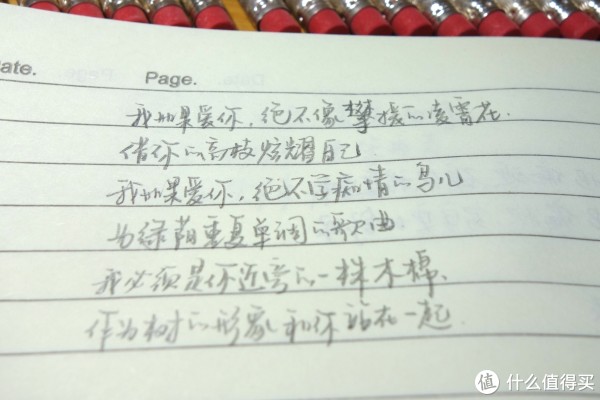 ate.
Page.
我如果爱你，绝不像攀援的凌霄花．
借你的高枝炫耀自己
我如果爱你，绝不学痴情的鸟儿
为绿荫重复单调的歌曲
我必须是你近旁的一株木棉、
作为树的形象和你站在一起．
值 什么值得买